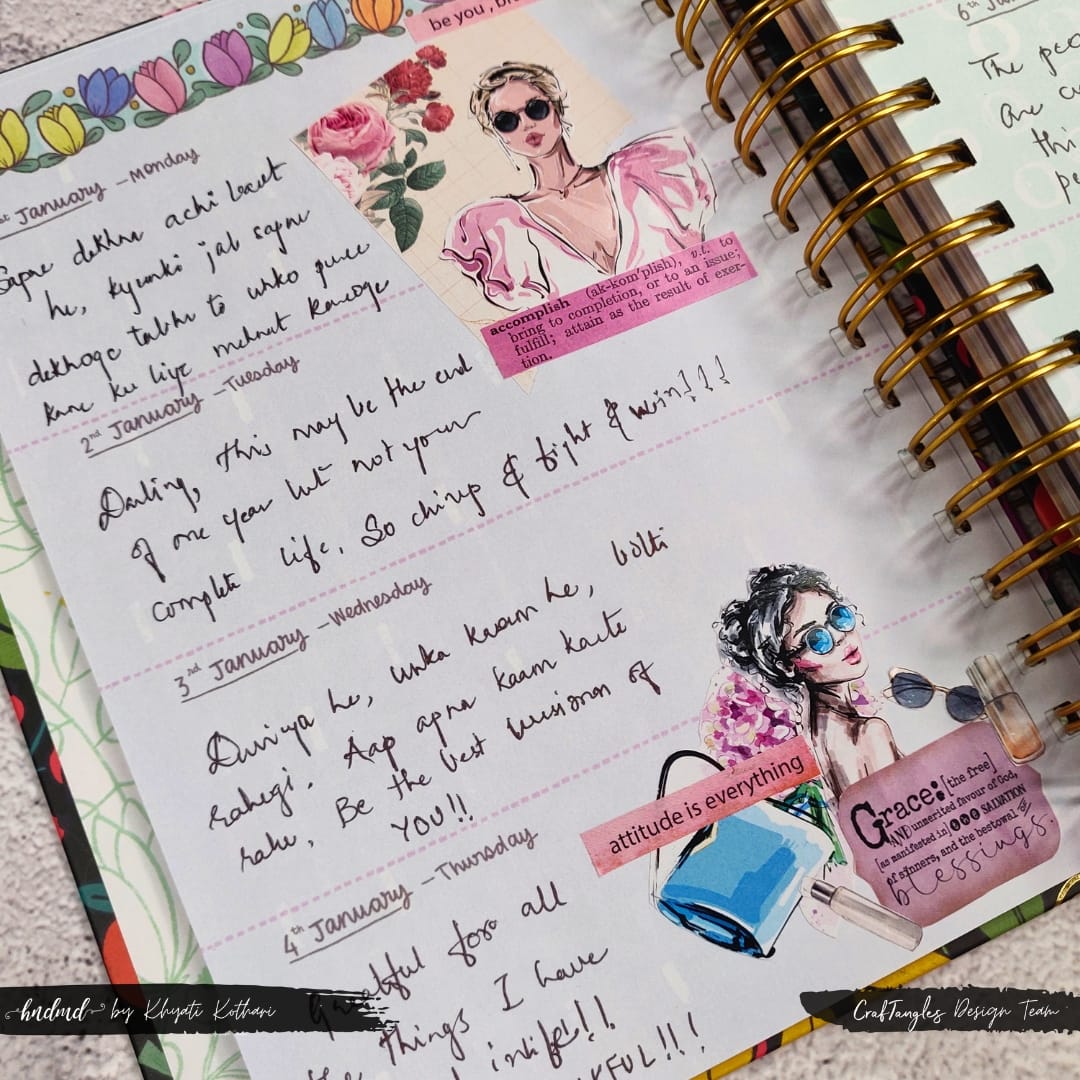 be you, br
1st January - Monday
Sapne dekhna achi baat
he, kyunki jab sapne
dekhoge tabhi to unko puree
karne ke liye mehnat karoge
accomplish (ak-kom'plish), v.t. to
bring to completion, or to an issue;
fulfill; attain as the result of exer-
tion.
2nd January - Tuesday
Darling, this may be the end
of one year but not your
complete life. So chirup & fight & win!!!
3rd January - Wednesday
Duniya he, unka kaam he, bolti
rahegi. Aap apna kaam karte
rahe, Be the best version of
YOU!!
attitude is everything
Grace: [the free]
AND unmerited favour of God,
[as manifested in] THE SALVATION
of sinners, and the bestowal OF
blessings.
4th January - Thursday
for all
the things I have
in life!!
KFUL!!!
6th Jan
The peo
are cu
thi
pe
hndmd by Khyati Kothari
CrafTangles Design Team